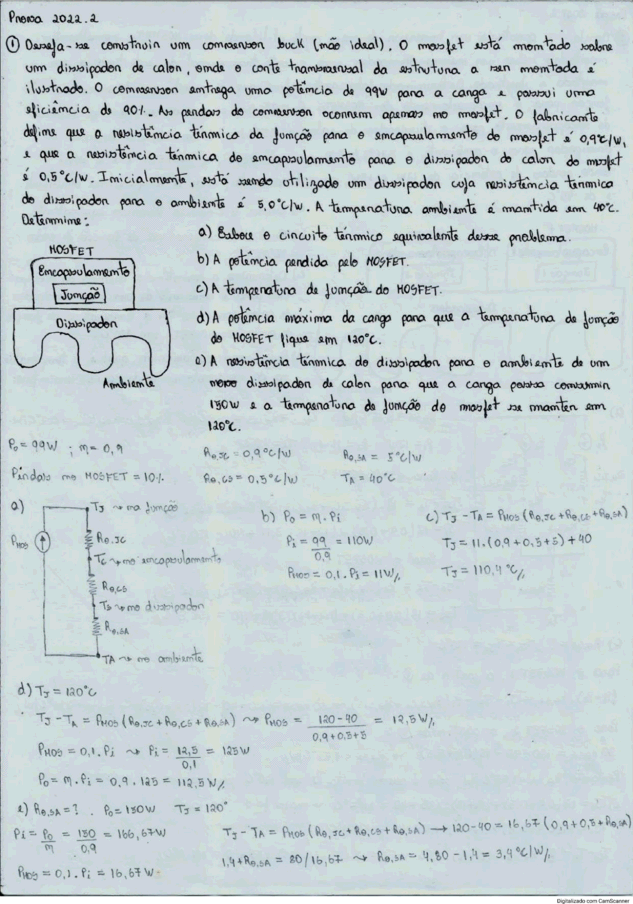 Prova 2022.2
① Deseja-se construir um conversor buck (não ideal). O mosfet está montado sobre
um dissipador de calor, onde o corte transversal da estrutura a ser montada é
ilustrado. O conversor entrega uma potência de 99W para a carga e possui uma
eficiência de 90%. As perdas do conversor ocorrem apenas no mosfet. O fabricante
define que a resistência térmica da junção para o encapsulamento do mosfet é 0,9°C/W,
e que a resistência térmica do encapsulamento para o dissipador do calor do mosfet
é 0,5°C/W. Inicialmente, está sendo utilizado um dissipador cuja resistência térmica
do dissipador para o ambiente é 5,0°C/W. A temperatura ambiente é mantida em 40°C.
Determine:
a) Esboce o circuito térmico equivalente desse problema.
b) A potência perdida pelo MOSFET.
c) A temperatura de junção do MOSFET.
d) A potência máxima da carga para que a temperatura de junção
do MOSFET fique em 120°C.
e) A resistência térmica do dissipador para o ambiente de um
novo dissipador de calor para que a carga possa consumir
150W e a temperatura de junção do mosfet se manter em
120°C.
MOSFET
Encapsulamento
Junção
Dissipador
Ambiente
Po = 99W ; η = 0,9
Rθ,JC = 0,9°C/W
Rθ,SA = 5°C/W
Perdas no MOSFET = 10%
Rθ,CS = 0,5°C/W
TA = 40°C
a)
PMOS
TJ ⇝ na junção
Rθ,JC
Tc ⇝ no encapsulamento
Rθ,CS
Ts ⇝ no dissipador
Rθ,SA
TA ⇝ no ambiente
b) Po = η . Pi
Pi = 99/0,9 = 110W
PMOS = 0,1 . Pi = 11W//
c) TJ - TA = PMOS (Rθ,JC + Rθ,CS + Rθ,SA)
TJ = 11.(0,9 + 0,5 + 5) + 40
TJ = 110,4 °C//
d) TJ = 120°C
TJ - TA = PMOS (Rθ,JC + Rθ,CS + Rθ,SA) ⇝ PMOS = 120-40/0,9+0,5+5 = 12,5 W//
PMOS = 0,1 . Pi ⇝ Pi = 12,5/0,1 = 125W
Po = η . Pi = 0,9 . 125 = 112,5 W//
e) Rθ,SA = ? . Po = 150W TJ = 120°
Pi = Po/η = 150/0,9 = 166,67W
TJ - TA = PMOS (Rθ,JC + Rθ,CS + Rθ,SA) → 120-40 = 16,67 (0,9 + 0,5 + Rθ,SA)
1,4 + Rθ,SA = 80/16,67 ⇝ Rθ,SA = 4,80 - 1,4 = 3,4 °C/W//
PMOS = 0,1 . Pi = 16,67 W
Digitalizado com CamScanner